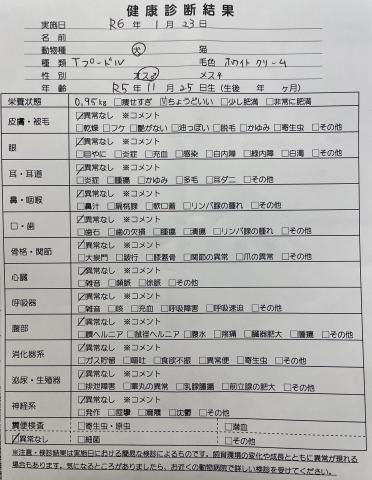 健康診断結果
実施日 R6年 1月 23日
名前
動物種 犬 猫
種類 Tプードル 毛色 ホワイトクリーム
性別 オス♂ メス♀
年齢 R5年 11月 25日生(生後 年 ヶ月)
栄養状態 0.95kg □痩せすぎ ☑ちょうどいい □少し肥満 □非常に肥満
皮膚・被毛 ☑異常なし ※コメント
□乾燥 □フケ □艶がない □油っぽい □脱毛 □かゆみ □寄生虫 □その他
眼 ☑異常なし ※コメント
□目やに □炎症 □充血 □感染 □白内障 □緑内障 □白濁 □その他
耳・耳道 ☑異常なし ※コメント
□炎症 □腫瘍 □かゆみ □多毛 □耳ダニ □その他
鼻・咽喉 ☑異常なし ※コメント
□鼻汁 □扁桃腺 □軟口蓋 □リンパ腺の腫れ □その他
口・歯 ☑異常なし ※コメント
□歯石 □歯の欠損 □腫瘍 □潰瘍 □リンパ腺の腫れ □その他
骨格・関節 ☑異常なし ※コメント
□大泉門 □跛行 □膝蓋骨 □関節の異常 □爪の異常 □その他
心臓 ☑異常なし ※コメント
□雑音 □頻脈 □徐脈 □その他
呼吸器 ☑異常なし ※コメント
□雑音 □咳 □充血 □呼吸障害 □呼吸速迫 □その他
腹部 ☑異常なし ※コメント
□臍ヘルニア □鼠径ヘルニア □腹水 □疼痛 □臓器肥大 □腫瘍 □その他
消化器系 ☑異常なし ※コメント
□ガス貯留 □嘔吐 □食欲不振 □異常便 □寄生虫 □その他
泌尿・生殖器 ☑異常なし ※コメント
□排泄障害 □睾丸の異常 □乳腺腫瘍 □前立腺の肥大 □その他
神経系 ☑異常なし ※コメント
□発作 □痙攣 □麻痺 □沈鬱 □その他
糞便検査 □寄生虫・原虫 □潜血
☑異常なし □細菌 □その他
※注意・検診結果は実施日における簡易な検診によるものです。飼育環境の変化や成長とともに異常が現れる
場合もあります。気になるところがありましたら、お近くの動物病院で詳しい検診を受けてください。